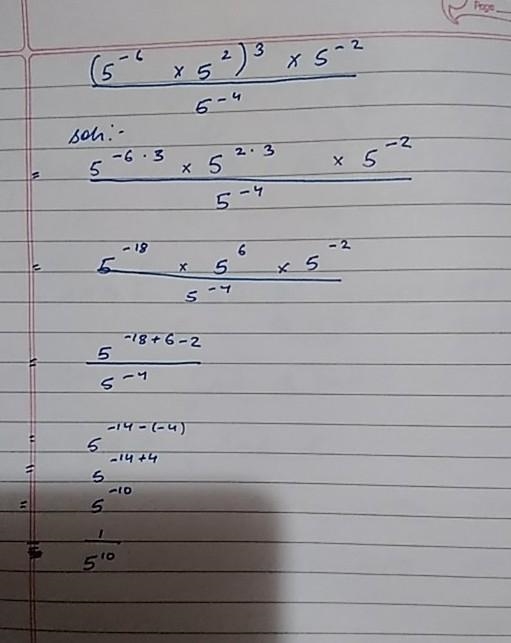 Page
(5⁻⁶ × 5²)³ × 5⁻²
5⁻⁴
soln:-
= 5⁻⁶·³ × 5²·³ × 5⁻²
5⁻⁴
= 5⁻¹⁸ × 5⁶ × 5⁻²
5⁻⁴
= 5⁻¹⁸⁺⁶⁻²
5⁻⁴
= 5⁻¹⁴⁻⁽⁻⁴⁾
= 5⁻¹⁴⁺⁴
= 5⁻¹⁰
= 1
5¹⁰